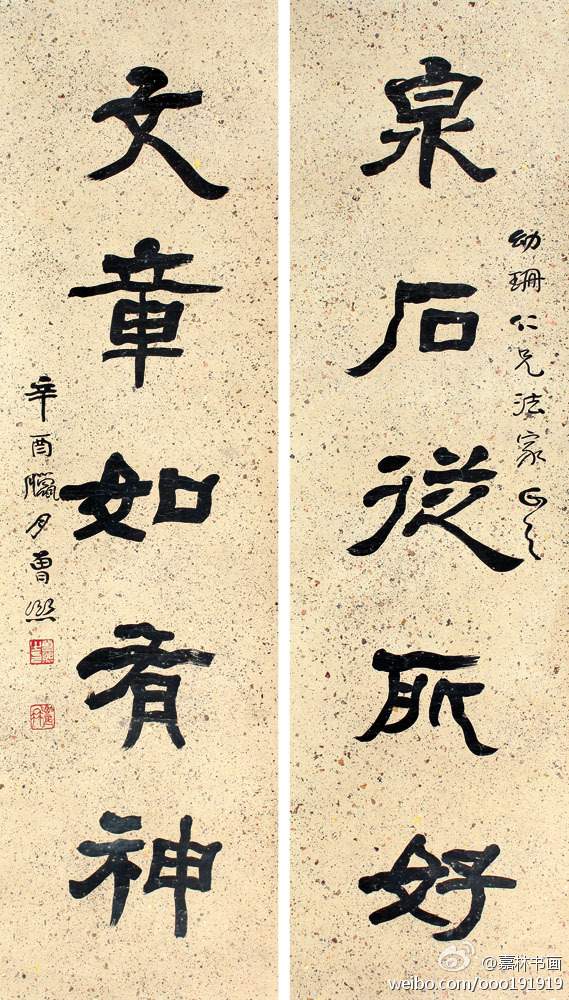 泉石從所好
幼珊仁兄法家正之
文章如有神
辛酉臘月曾熙
@嘉林书画
weibo.com/ooo191919